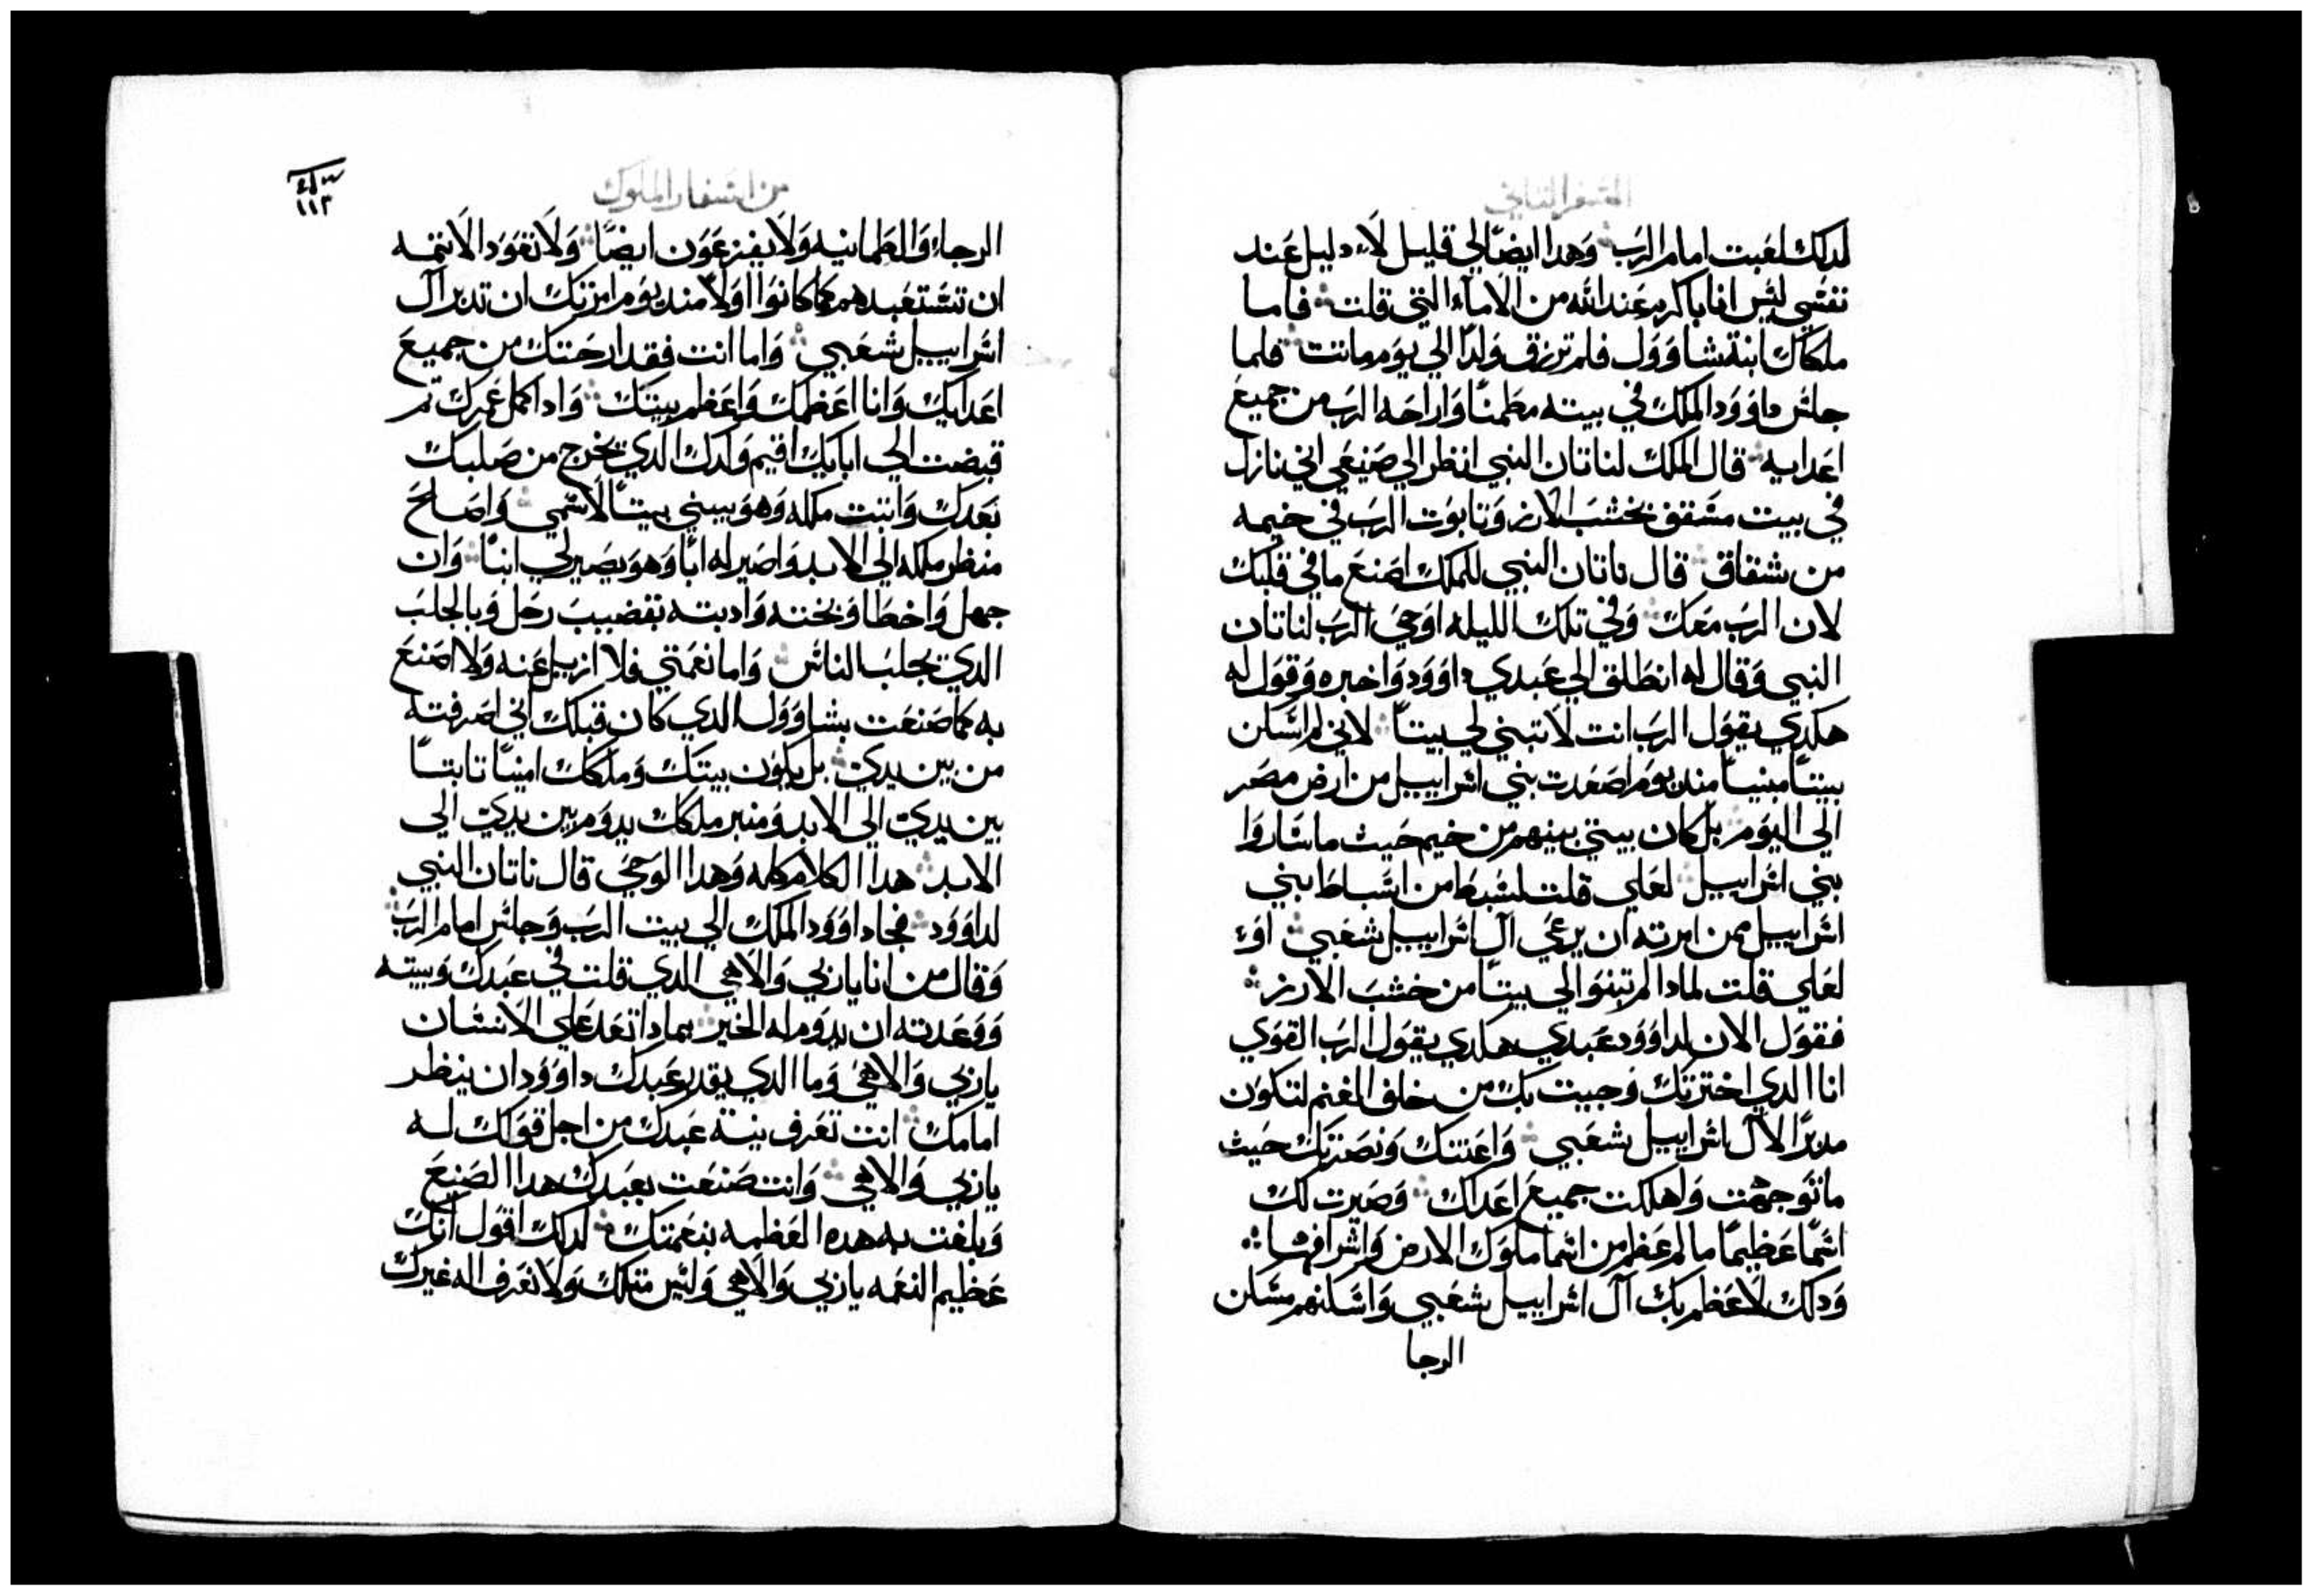 السفر الثاني
لدلك لعبت امام الرب وَهدا ايضًا لي قليل لاَء دليل عَند
نفسي ليس انا باكرم عَند الله من الاَماَء التي قلت فاما
ملكال ابنة شاوَوَل فلم ترزق وَلدًا الي يوَم وماتت فلما
جلس داوَوَد الملك في بيته مطمنًا وَاراحَه الرب من جميعَ
اعَدايه قال الملك لناتان النبي انظر الي صَنيعَي اني نازل
في بيت مسَقف بخشبَ الارز وَتابوَت الربَ في خيمه
من شقاق قال ناتان النبي للملك اصَنعَ ما في قلبك
لان الربَ معَك وَفي تلك الليله اوَحيَ الربَ لناتان
النبي وَقال له انطلق الي عَبدي داوَوَد وَاخبره وَقوَل له
هكدي يقوَل الربَ انت لاَ تبني لي بيتاً لاني لم اسَكن
بيتاً مبنياً مند يوَم اصَعَدت بني اسَراييل من ارض مصَر
الي اليوَم بل كان بيتي بينهم من خيم حَيث ما سَاروَا
بني اسَراييل لعَلي قلت لسَبط من اسَباط بني
اسَراييل ممن امرته ان يرعَي آل اسَراييل شعَبي اوَ
لعَلي قلت لمادا لم تبنوَا لي بيتاً من خشبَ الارز
فقوَل الان لداوَوَد عَبدي هكدي يقوَل الربَ القوَي
انا الدي اخترتك وَجيت بك من خلف الغنم لتكوَن
مدبرًا لاَل اسَراييل شعَبي وَاعَنتك وَنصَرتك حَيث
ما توَجهت وَاهلكت جميعَ اعَداك وَصَيرت لك
اسَمًا عَظيمًا ما لم عَظم من اسَما ملوَك الارض وَاشرافها
وَدلك لاَعَظم بك آل اسَراييل شعَبي وَاسَكنهم مسَكن
الرجا
من اسفار الملوك
١١٣
الرجاء وَالطمانينه وَلاَ يفزعَوَن ايضًا وَلاَ تعَوَد الاَ تمه
ان تسَتعَبدهم كما كانوَا اوَلاً مند يوَم امرتك ان تدبر آل
اسَراييل شعَبي وَاما انت فقد ارحَتك من جميعَ
اعَدايك وَانا اعَظمك وَاعَظم بيتك وَادا كمل عَمرك تم
قبضت الي ابايك اقيم وَلدك الدي يخرج من صَلبك
بعَدك وَاتبت ملكه وَهوَ يبني بيتاً لاَسَمي وَاصَلحَ
منظر ملكه الي الابد وَاصَير له ابًا وَهوَ يصَير لي ابنًا وَان
جهل وَاخطا وَبخته وَادبته بقضيبَ رجَل وَبالجلبَ
الدي يجلبَ الناس وَاما نعَمتي فلا ازيل عَنه وَلا اصَنعَ
به كما صَنعَت بشاوَوَل الدي كان قبلك اني اصَرفته
من بين يدي بل يكوَن بيتك وَملكك امينًا تابتاً
بين يدي الي الابد وَمنبر ملكك يدوَم بين يدي الي
الابد هدا الكلام كله وَهدا الوَحيَ قال ناتان النبي
لداوَوَد فجاد اوَوَد الملك الي بيت الربَ وَجلس امام الربَ
وَقال من انا يا ربي وَالاَهي الدي قلت في عَبدك وَبيته
وَوَعَدته ان يدوَم له الخير بمادا تعَد عَلي الانسَان
يا ربي وَالاهي وَما الدي يقدر عَبدك داوَوَد ان ينظر
امامك انت تعَرف نية عَبدك من اجل قوَلك له
يا ربي وَالاهي وَانت صَنعَت بعَبدك هدا الصَنعَ
وَبلغت به هده العَظمه بنعَمتك لدلك اقوَل انك
عَظيم النعَمه يا ربي وَالاَهي وَليس متلك وَلاَ نعَرف اله غيرك